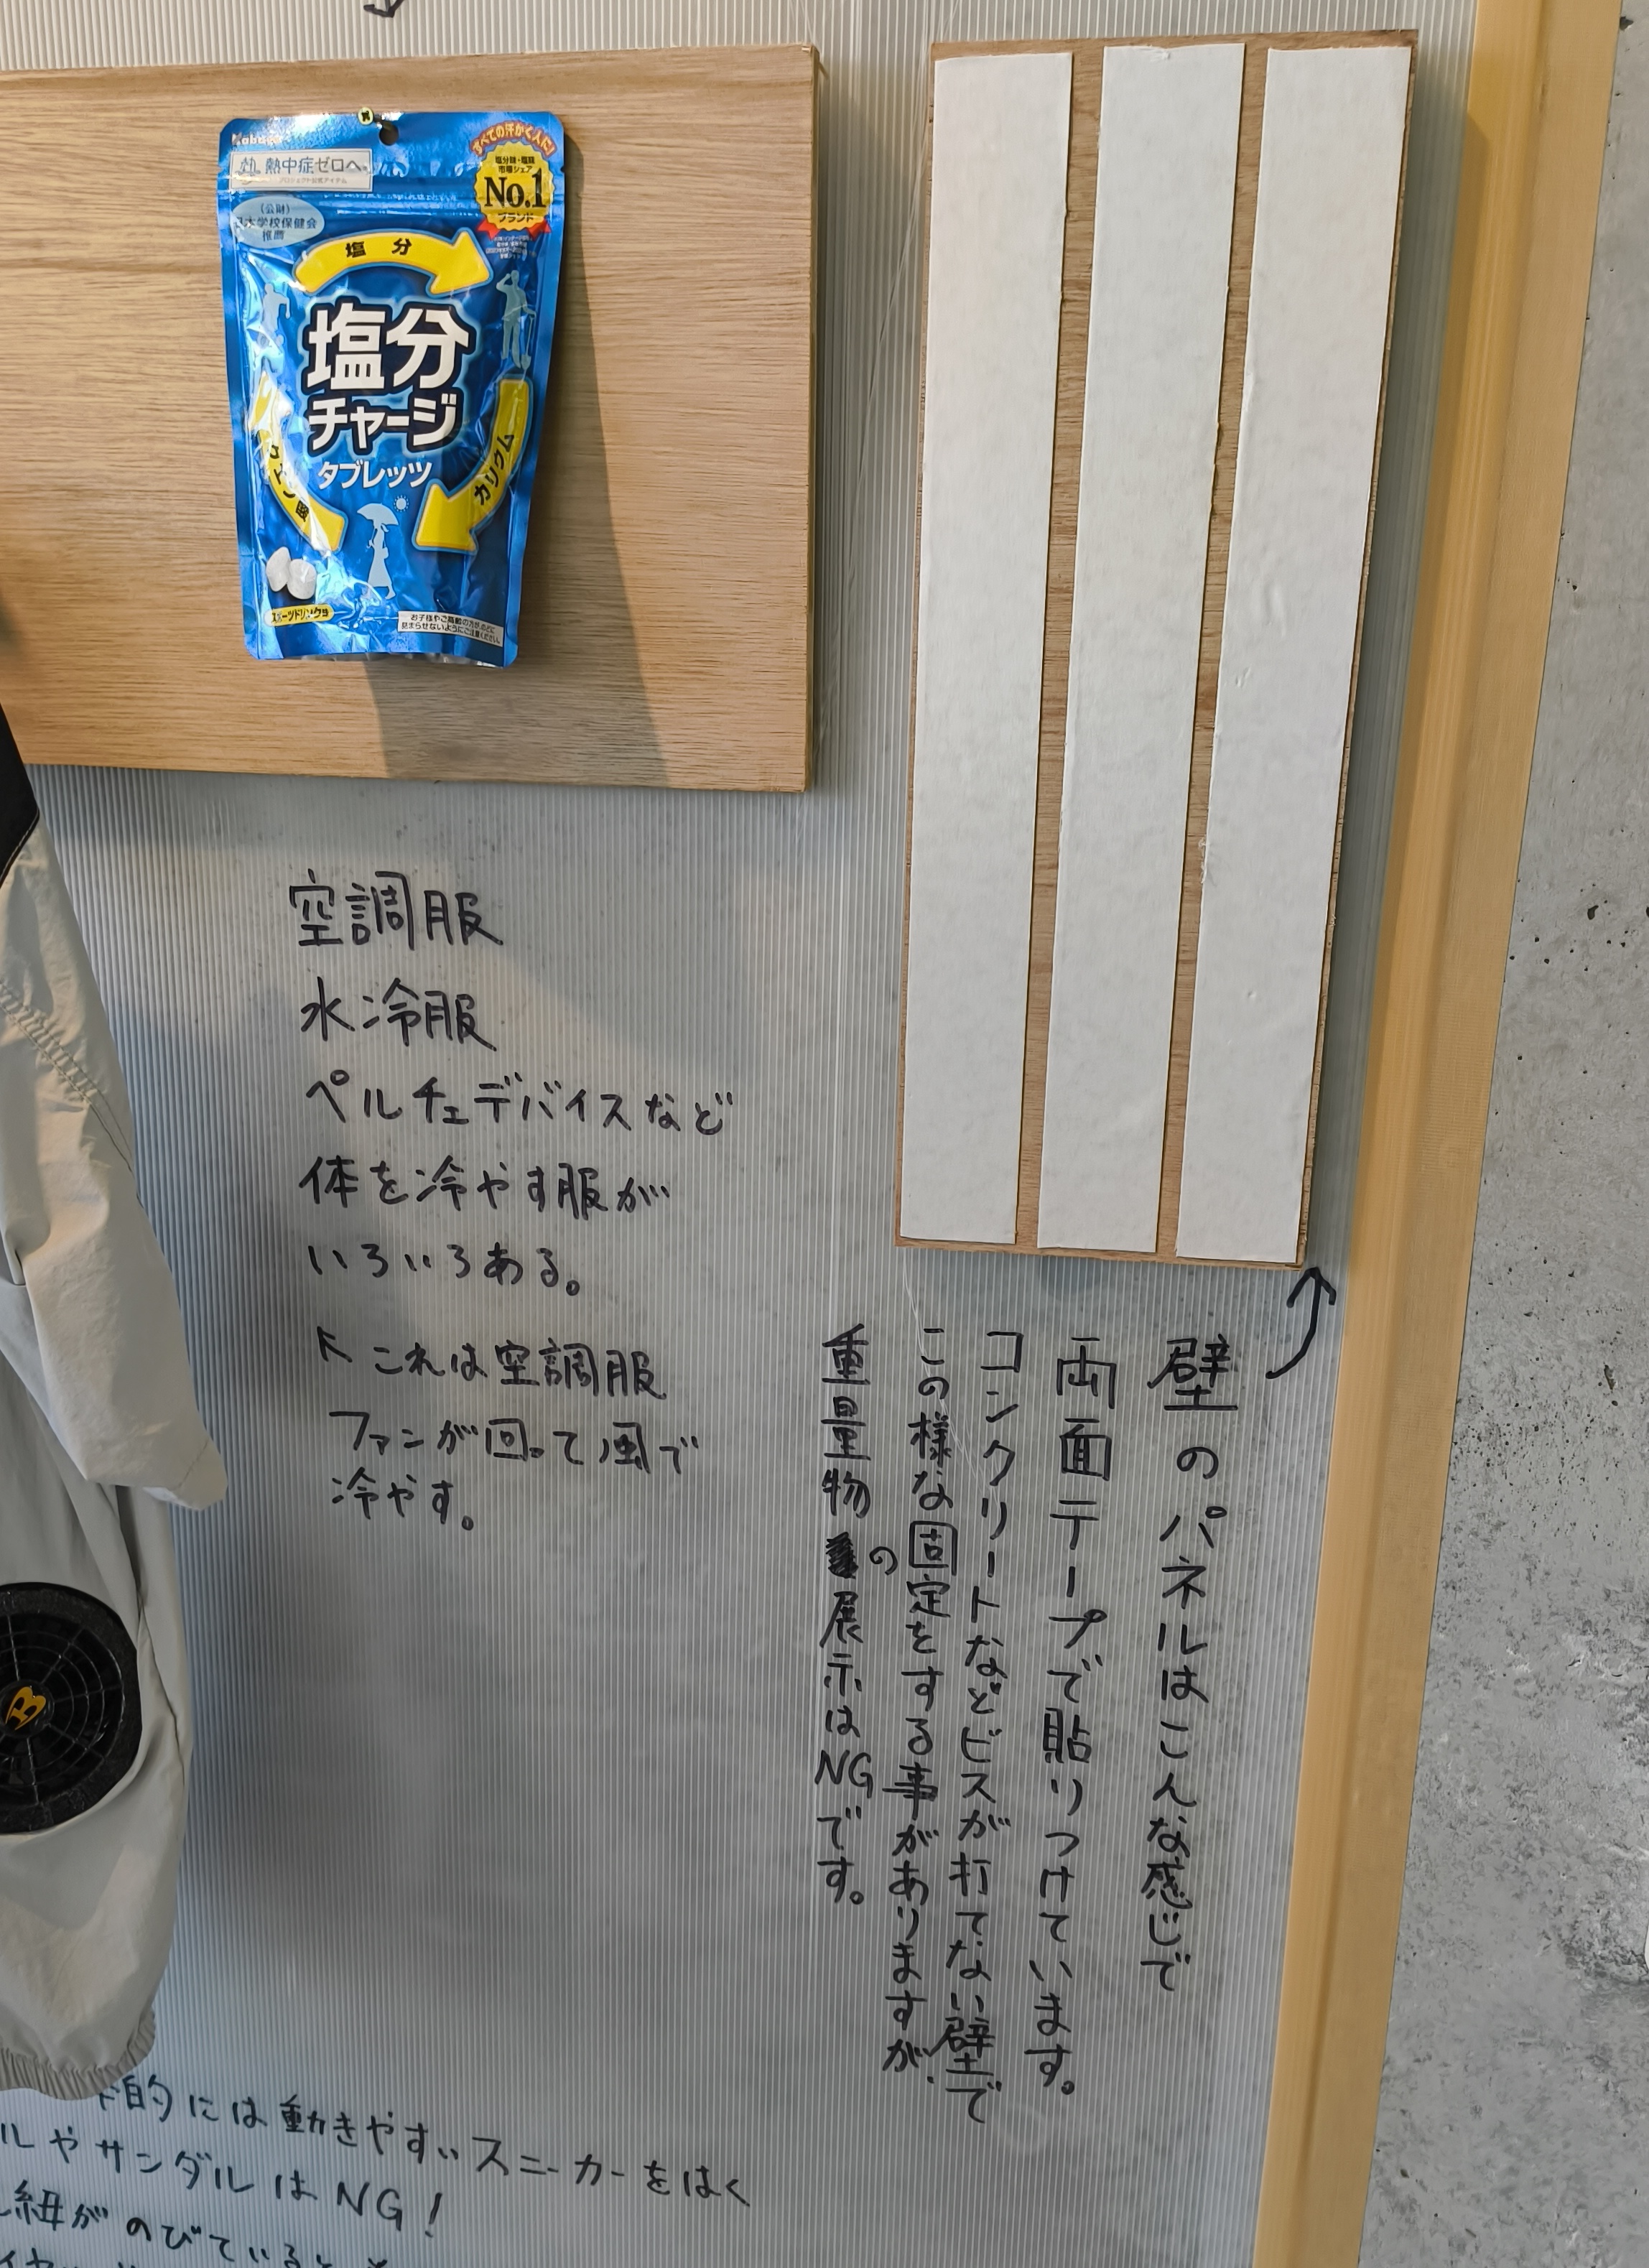 Kabaya
熱中症ゼロへ
プロジェクト公式アイテム
(公財)
日本学校保健会
推薦
すべての汗かく人に!
塩分錠・塩飴
市場シェア
No.1
ブランド
塩分
塩分
チャージ
タブレッツ
カリウム
クエン酸
スポーツドリンク味
お子様やご高齢の方が、のどに
詰まらせないようにご注意ください。
空調服
水冷服
ペルチェデバイスなど
体を冷やす服が
いろいろある。
これは空調服
ファンが回って風で
冷やす。
壁のパネルはこんな感じで
両面テープで貼りつけています。
コンクリートなどビスが打てない壁で
この様な固定をする事がありますが、
重量物の展示はNGです。
B
的には動きやすいスニーカーをはく
ルやサンダルはNG!
紐がのびていると